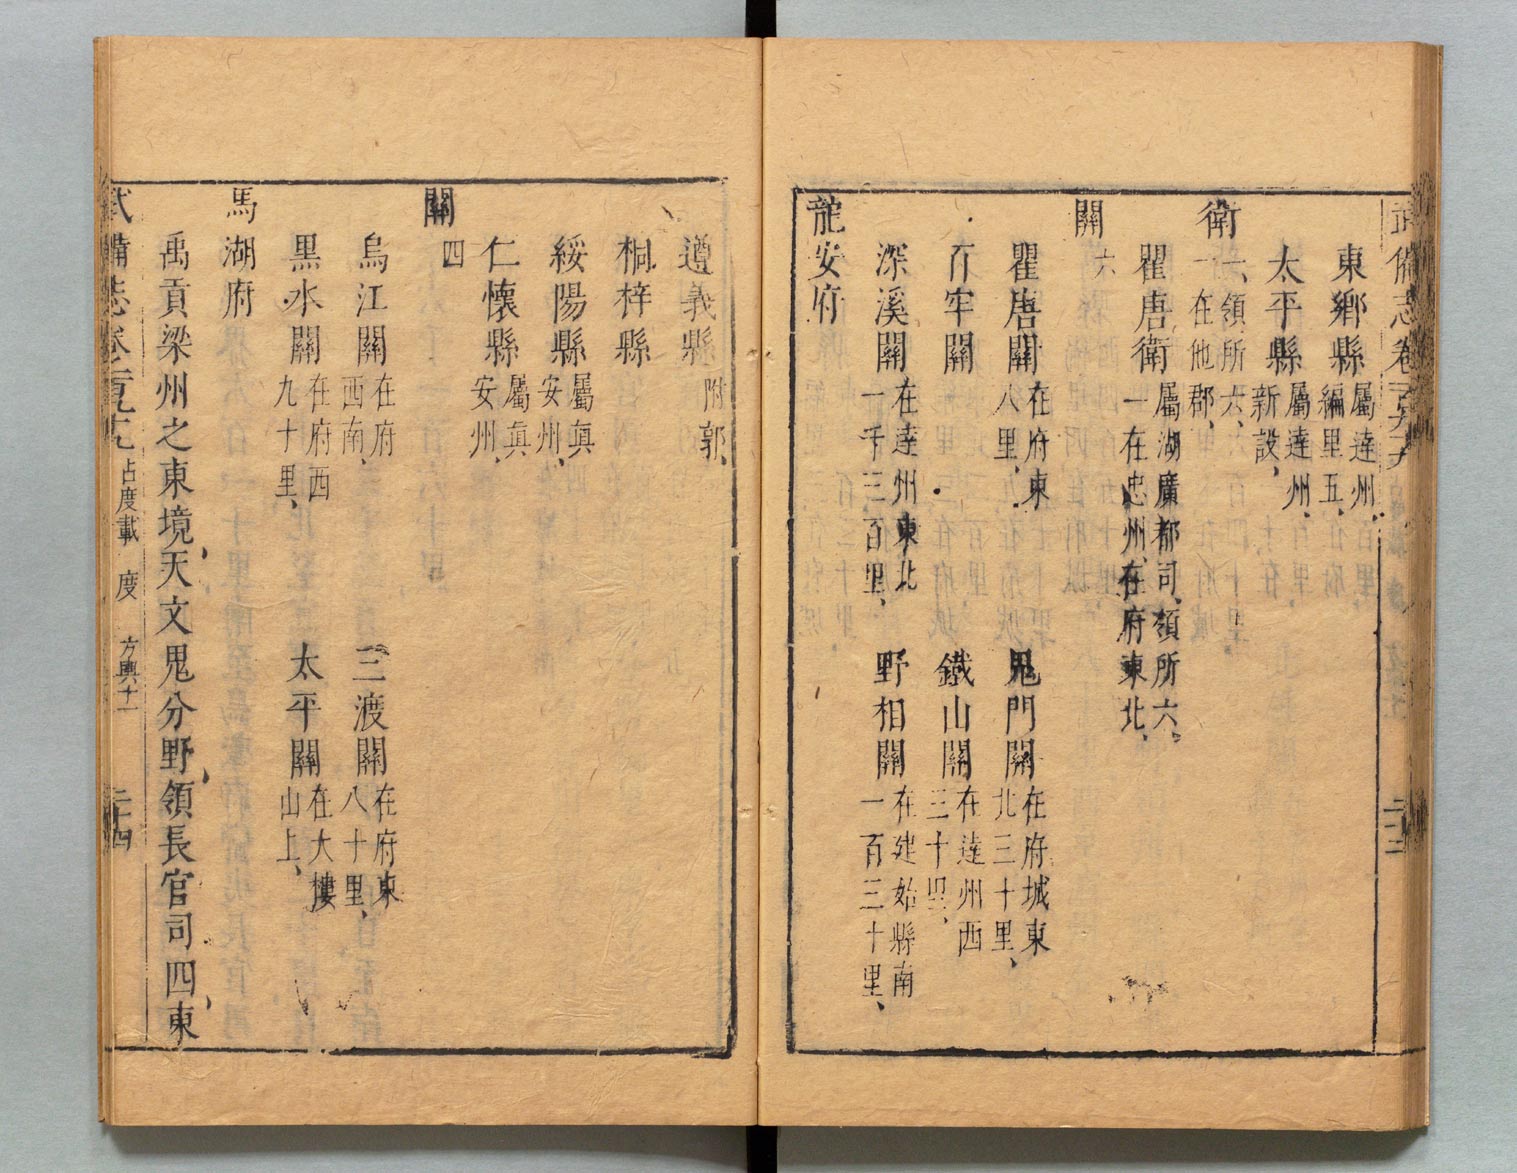 東鄉縣 屬達州編里五
太平縣 屬達州新設
衛
一領所六一在他郡
瞿唐衛 屬湖廣都司領所六一在忠州在府東北
關
六
瞿唐關 在府東八里 鬼門關 在府城東北三十里
百牢關 鐵山關 在達州西三十里
深溪關 在達州東北一千三百里 野相關 在建始縣南一百三十里
龍安府
遵義縣 附郭
桐梓縣
綏陽縣 屬眞安州
仁懷縣 屬眞安州
關
四
烏江關 在府西南 三渡關 在府東八十里
黑水關 在府西九十里 太平關 在大摟山上
馬湖府
禹貢梁州之東境天文鬼分野領長官司四東
武備志卷 占度載 度 方輿十一 二十四